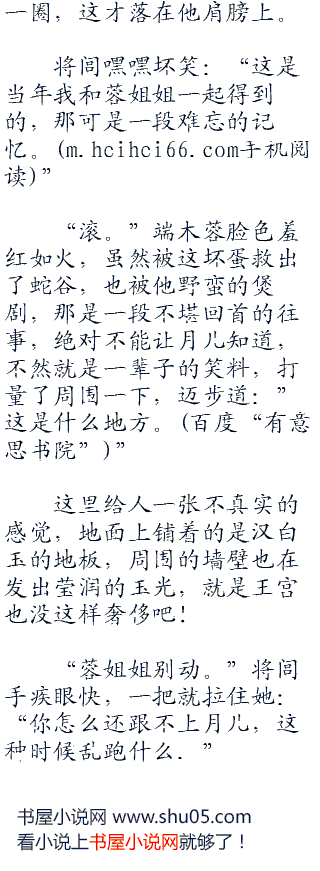 一圈，这才落在他肩膀上。
将闾嘿嘿坏笑：“这是
当年我和蓉姐姐一起得到
的，那可是一段难忘的记
忆。(m.hcihci66.com手机阅
读)”
“滚。”端木蓉脸色羞
红如火，虽然被这坏蛋救出
了蛇谷，也被他野蛮的煲
剧，那是一段不堪回首的往
事，绝对不能让月儿知道，
不然就是一辈子的笑料，打
量了周围一下，迈步道：”
这是什么地方。(百度“有意
思书院”)”
这里给人一张不真实的
感觉，地面上铺着的是汉白
玉的地板，周围的墙壁也在
发出莹润的玉光，就是王宫
也没这样奢侈吧！
“蓉姐姐别动。”将闾
手疾眼快，一把就拉住她：
“你怎么还跟不上月儿，这
种时候乱跑什么．”
书屋小说网 www.shu05.com
看小说上书屋小说网就够了！